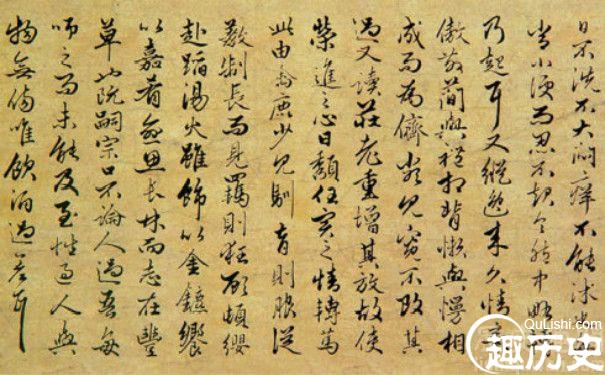 日不洗不大悶癢不能沐也
常小便而忍不起令胞中略
乃起耳又縱逸來久情
傲散簡與禮相背懶與慢相
成而為儕類見寬不攻其
過又讀莊老重增其放故使
榮進之心日頹任實之情轉篤
此由禽鹿少見馴育則服從
教制長而見羈則狂顧頓纓
赴蹈湯火雖飾以金鑣饗
以嘉肴愈思長林而志在豐
草也阮嗣宗口不論人過吾每
師之而未能及至性過人與
物無傷唯飲酒過差耳
QuLishi.com
趣历史